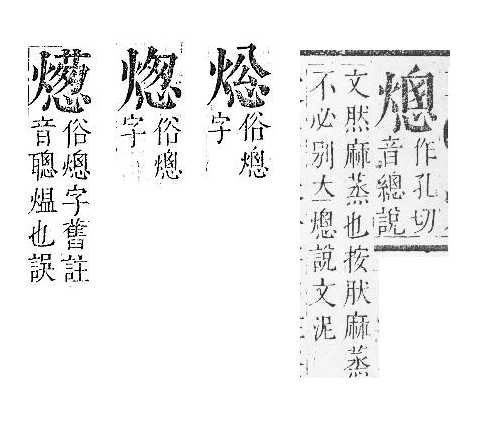 熜
作孔切
音總說
文然麻蒸也按肰麻蒸
不必別大熜說文泥
焧
俗熜
字
㷓
俗熜
字
俗熜字舊註
音聰熅也誤